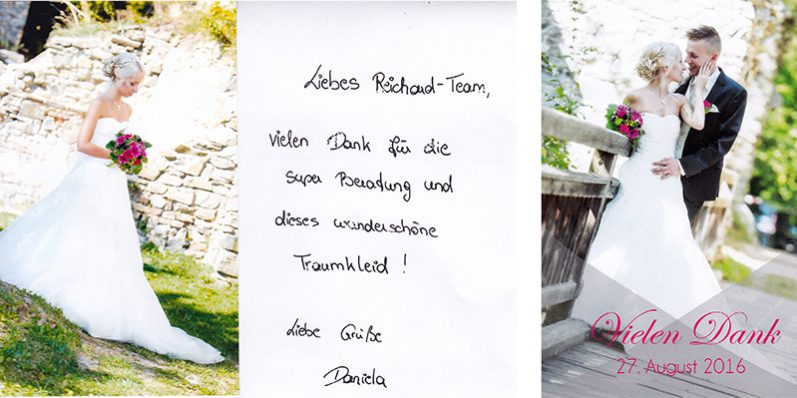 Liebes Reichard-Team,
vielen Dank für die
super Beratung und
dieses wunderschöne
Traumkleid !
Liebe Grüße
Daniela
Vielen Dank
27. August 2016